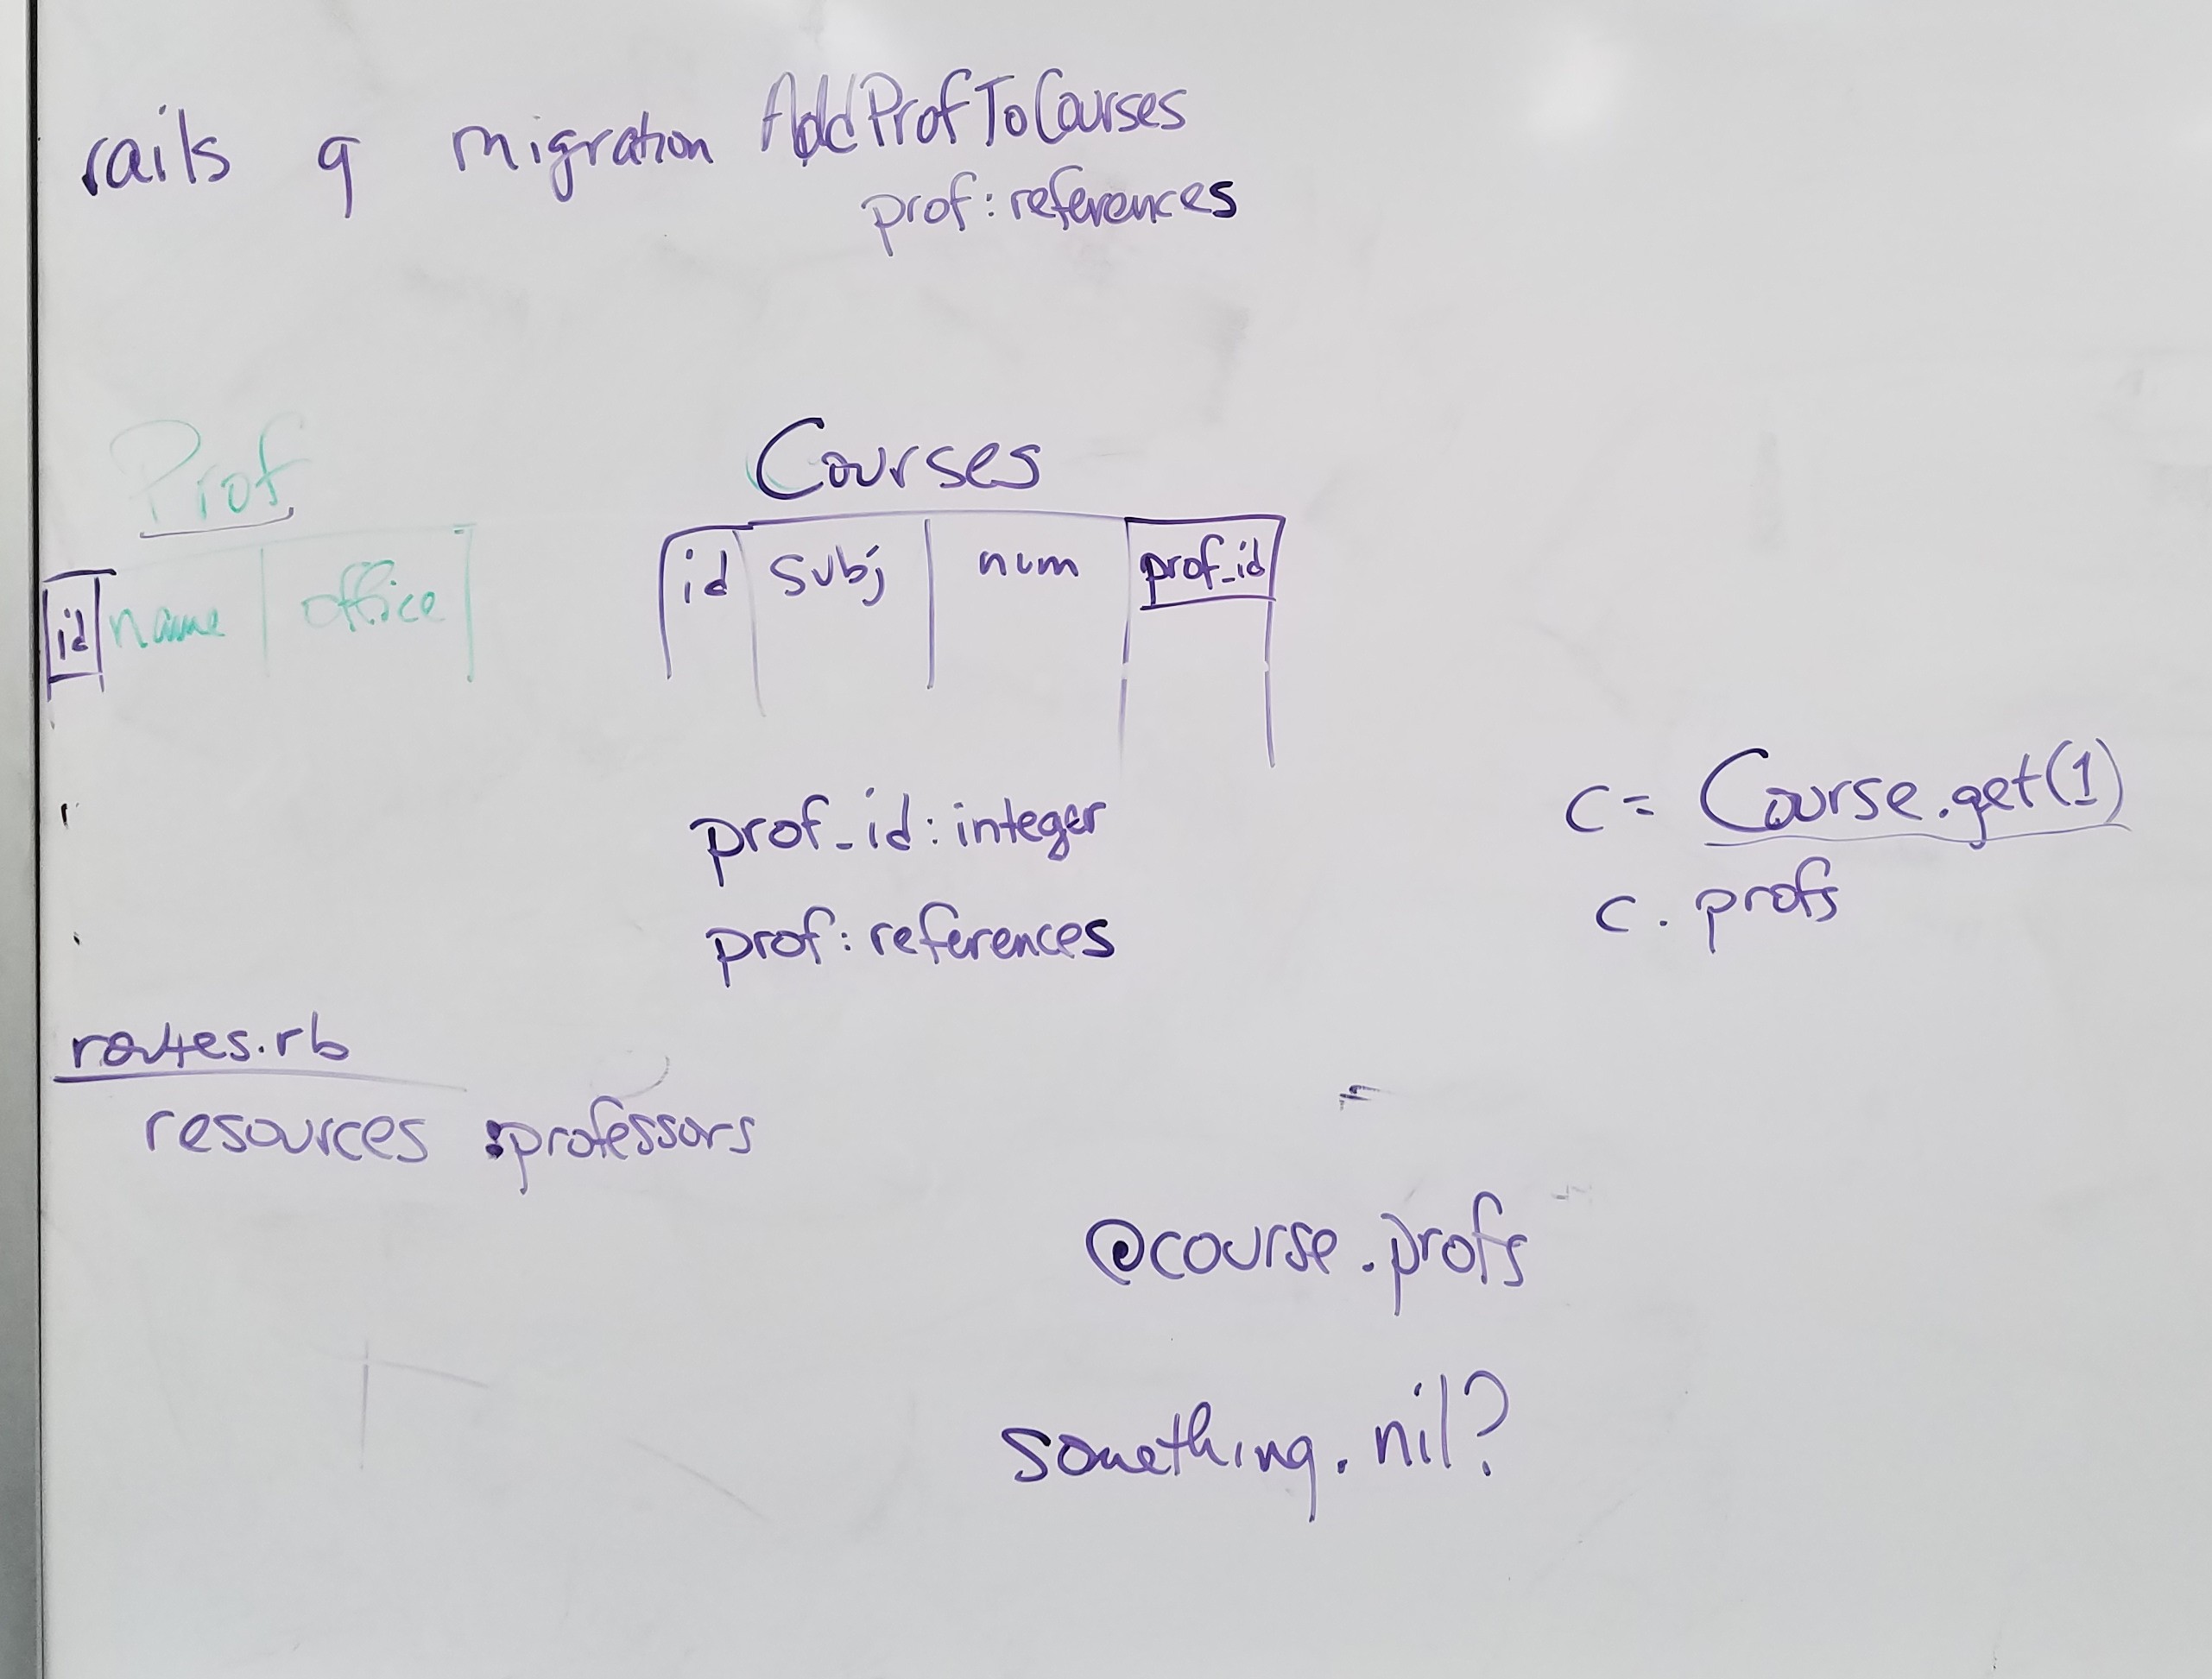 rails g migration AddProfToCourses
prof:references
Prof
id name office
Courses
id subj num prof_id
prof_id:integer
prof:references
c= Course.get(1)
c.profs
routes.rb
resources :professors
@course.profs
something.nil?